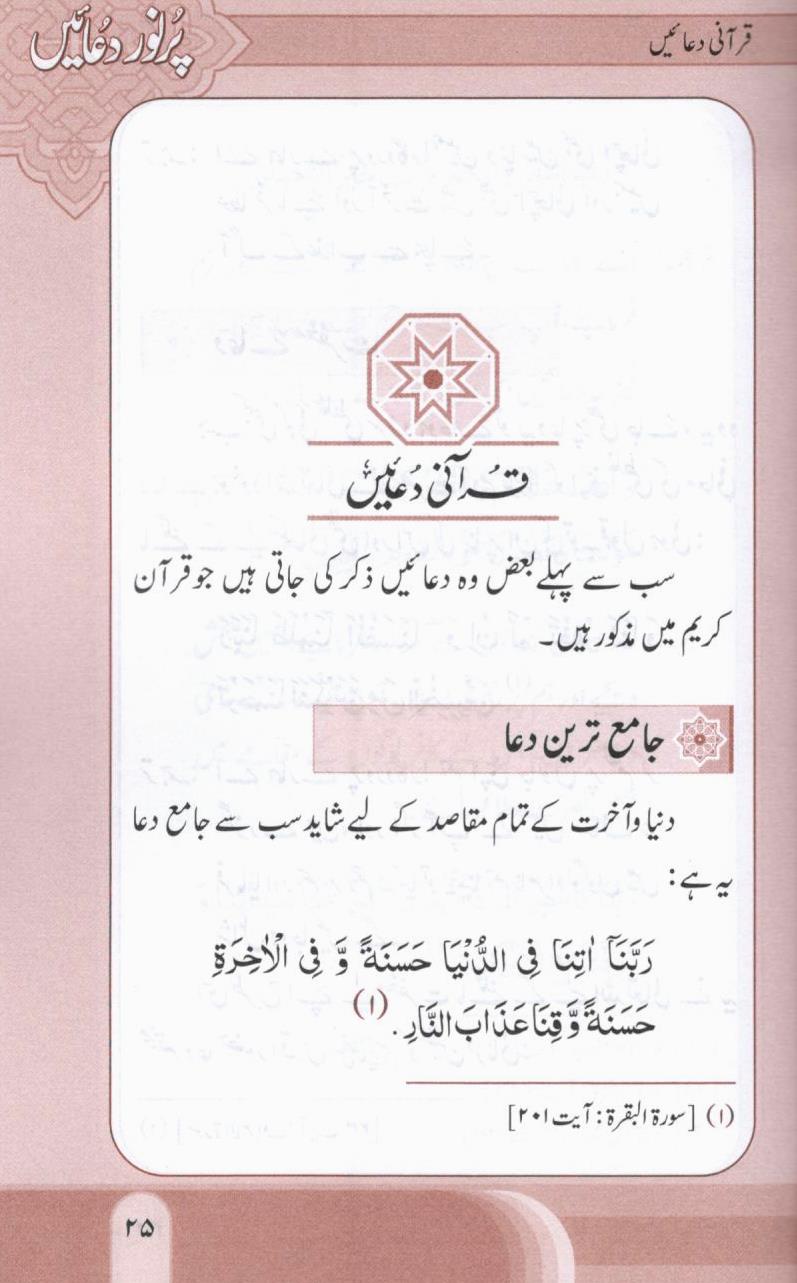 قرآنی دعائیں
پُرنور دعائیں
قُرآنی دُعائیں
سب سے پہلے بعض وہ دعائیں ذکر کی جاتی ہیں جو قرآن
کریم میں مذکور ہیں۔
جامع ترین دعا
دنیا وآخرت کے تمام مقاصد کے لیے شاید سب سے جامع دعا
یہ ہے:
رَبَّنَآ اٰتِنَا فِی الدُّنْیَا حَسَنَةً وَّ فِی الْاٰخِرَةِ
حَسَنَةً وَّقِنَا عَذَابَ النَّارِ۔ (۱)
(۱) [سورۃ البقرۃ: آیت ۲۰۱]
۲۵